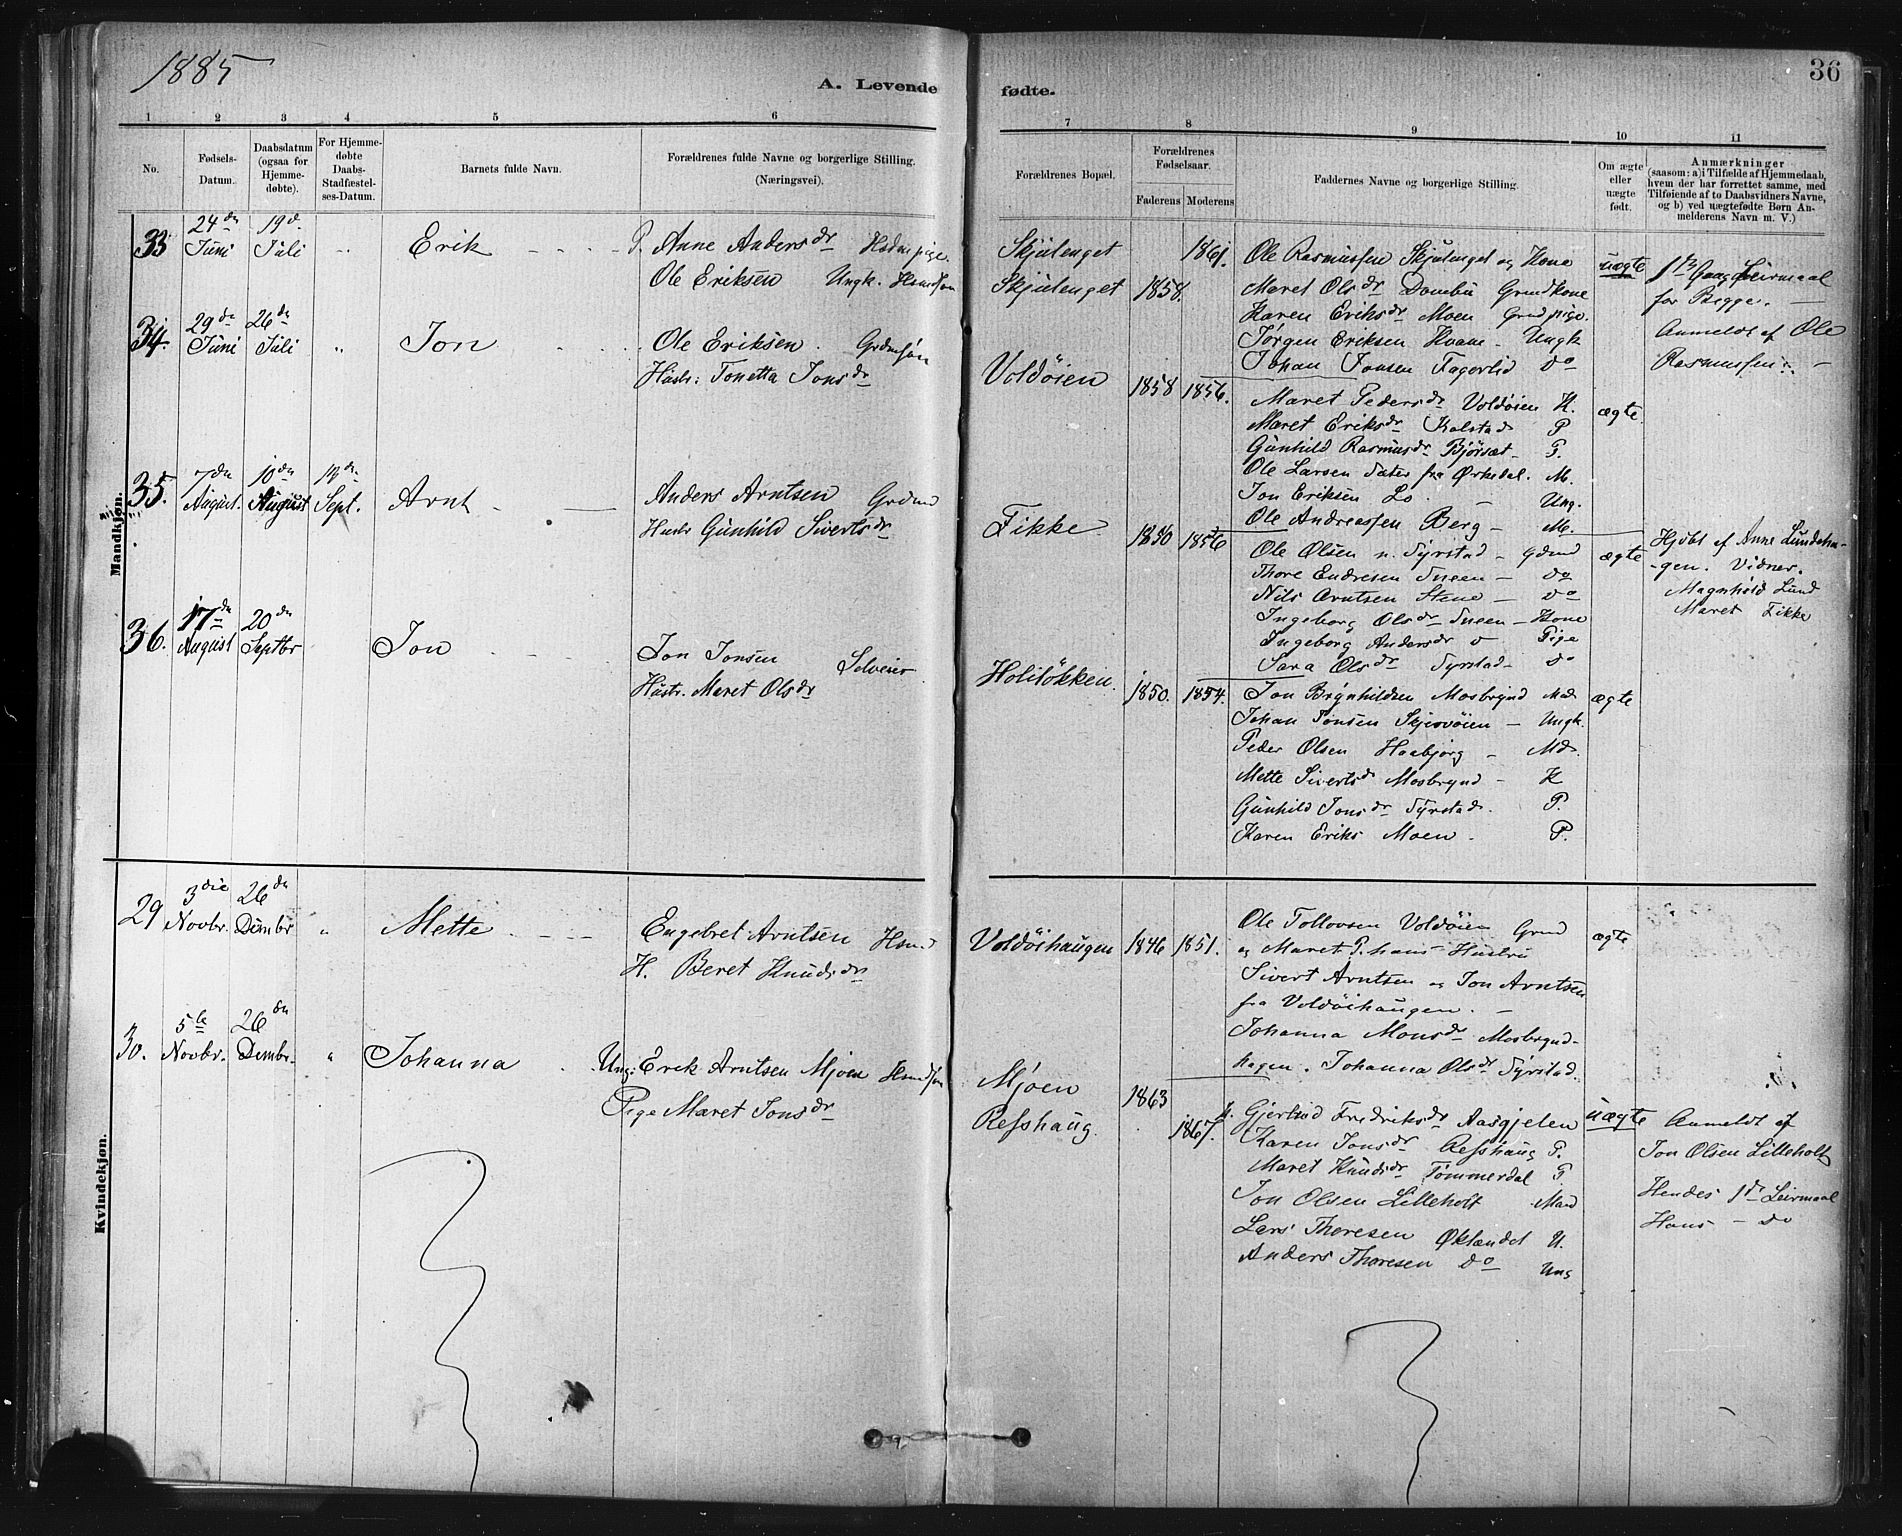 1885
A. Levende
1 2 3 4 5 6
No. Fødsels-Datum. Daabsdatum (ogsaa for Hjemmedøbte). For Hjemmedøbte Daabs-Stadfæstelses-Datum. Barnets fulde Navn. Forældrenes fulde Navne og borgerlige Stilling. (Næringsvei).
Mandkjøn.
33 24de Juni 19de Juli " Erik P. Anne Andersdr Hsdmpige.
Ole Eriksen Ungk. Hsmdsøn
34. 29de Juni 26de Juli " Jon Ole Eriksen. Grdmsøn
Hustr: Tonetta Jonsdr
35. 7de August. 10de August Sept. Arnt Anders Arntsen Grdmd
Hustr Gunhild Sivertsdr
36. 17de August 20de Septbr Jon Jon Jonsen Selveier
Hustr. Maret Olsdr
Kvindekjøn.
29 3die Novbr. 26de Dcmbr " Mette Engebret Arntsen Hsmd
H. Beret Knudsdr
30. 5te Novbr. 26de Dcmbr. " Johanna Ung: Erik Arntsen Mjoen Hsmdsøn
Pige Maret Jonsdr
36
fødte.
7 8 9 10 11
Forældrenes Bopæl. Forældrenes Fødselsaar. Faderens Moderens Faddernes Navne og borgerlige Stilling. Om ægte eller uægte født. Anmærkninger (saasom: a) i Tilfælde af Hjemmedaab, hvem der har forrettet samme, med Tilføiende af to Daabsvidners Navne, og b) ved uægtefødte Børn Anmelderens Navn m. V.)
Skjulenget 1861. Ole Rasmussen Skjulenget og Kone uægte 1ste Gangs Leirmaal
Skjulenget 1858. Maret Olsdr Dombu Grmdkone for Begge. —
Karen Eriksdr Moen Grmdpige.
Jørgen Eriksen Hvam - Ungk Anmeldt af Ole
Johan Jonsen Fagerlid do Rasmussen. -
Voldøien 1858 1856. Maret Pedersdr Voldøien K. ægte
Maret Eriksdr Kalstad P
Gunhild Rasmusdr Bjørset - P.
Ole Larsen Sæter fra Ørkedal. M.
Jon Eriksen Lo - Ung.
Ole Andreassen Berg - M.
Fikke 1850 1856 Ole Olsen n. Syrstad - Grdmd ægte Hjdbt af Anne
Thore Endresen Sneen - do -gen. Vidner.
Nils Arntsen Stene - do Magnhild Lund
Ingeborg Olsdr Sneen - Kone Maret Fikke
Ingeborg Andersdr do Pige
Sara Olsdr Syrstad - do
Holiløkken. 1850. 1854. Jon Brynhildsen Mosbrynd Md. ægte
Johan Jonsen Skjervøien - Ungk.
Peder Olsen Haabjørg - Md.
Mette Sivertsdr Mosbrynd - K
Gunhild Jonsdr Syrstad. P.
Karen Eriks Moen. P.
Voldøihaugen 1846 1851. Ole Tollovsen Voldøien Grmd ægte
og Maret P. hans Hustru
Sivert Arntsen og Jon Arntsen
fra Voldøihaugen. -
Johanna Monsdr Mosbrynd-
hagen. Johanna Olsdr Syrstad.
Mjoen 1863 K. Gjertrud Fredriksdr Aasgjelen uægte Anmeldt af
Refshaug. 1867. Karen Jonsdr Refshaug P. Jon Olsen Lilleholt
Maret Knudsdr Tømmerdal P
Jon Olsen Lilleholt Mand Hendes 1ste Leirmaal
Lars Thoresen Øklandet U. Hans - do
Anders Thoresen do Ung